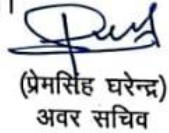 (प्रेमसिंह घरेन्द्र)
अवर सचिव